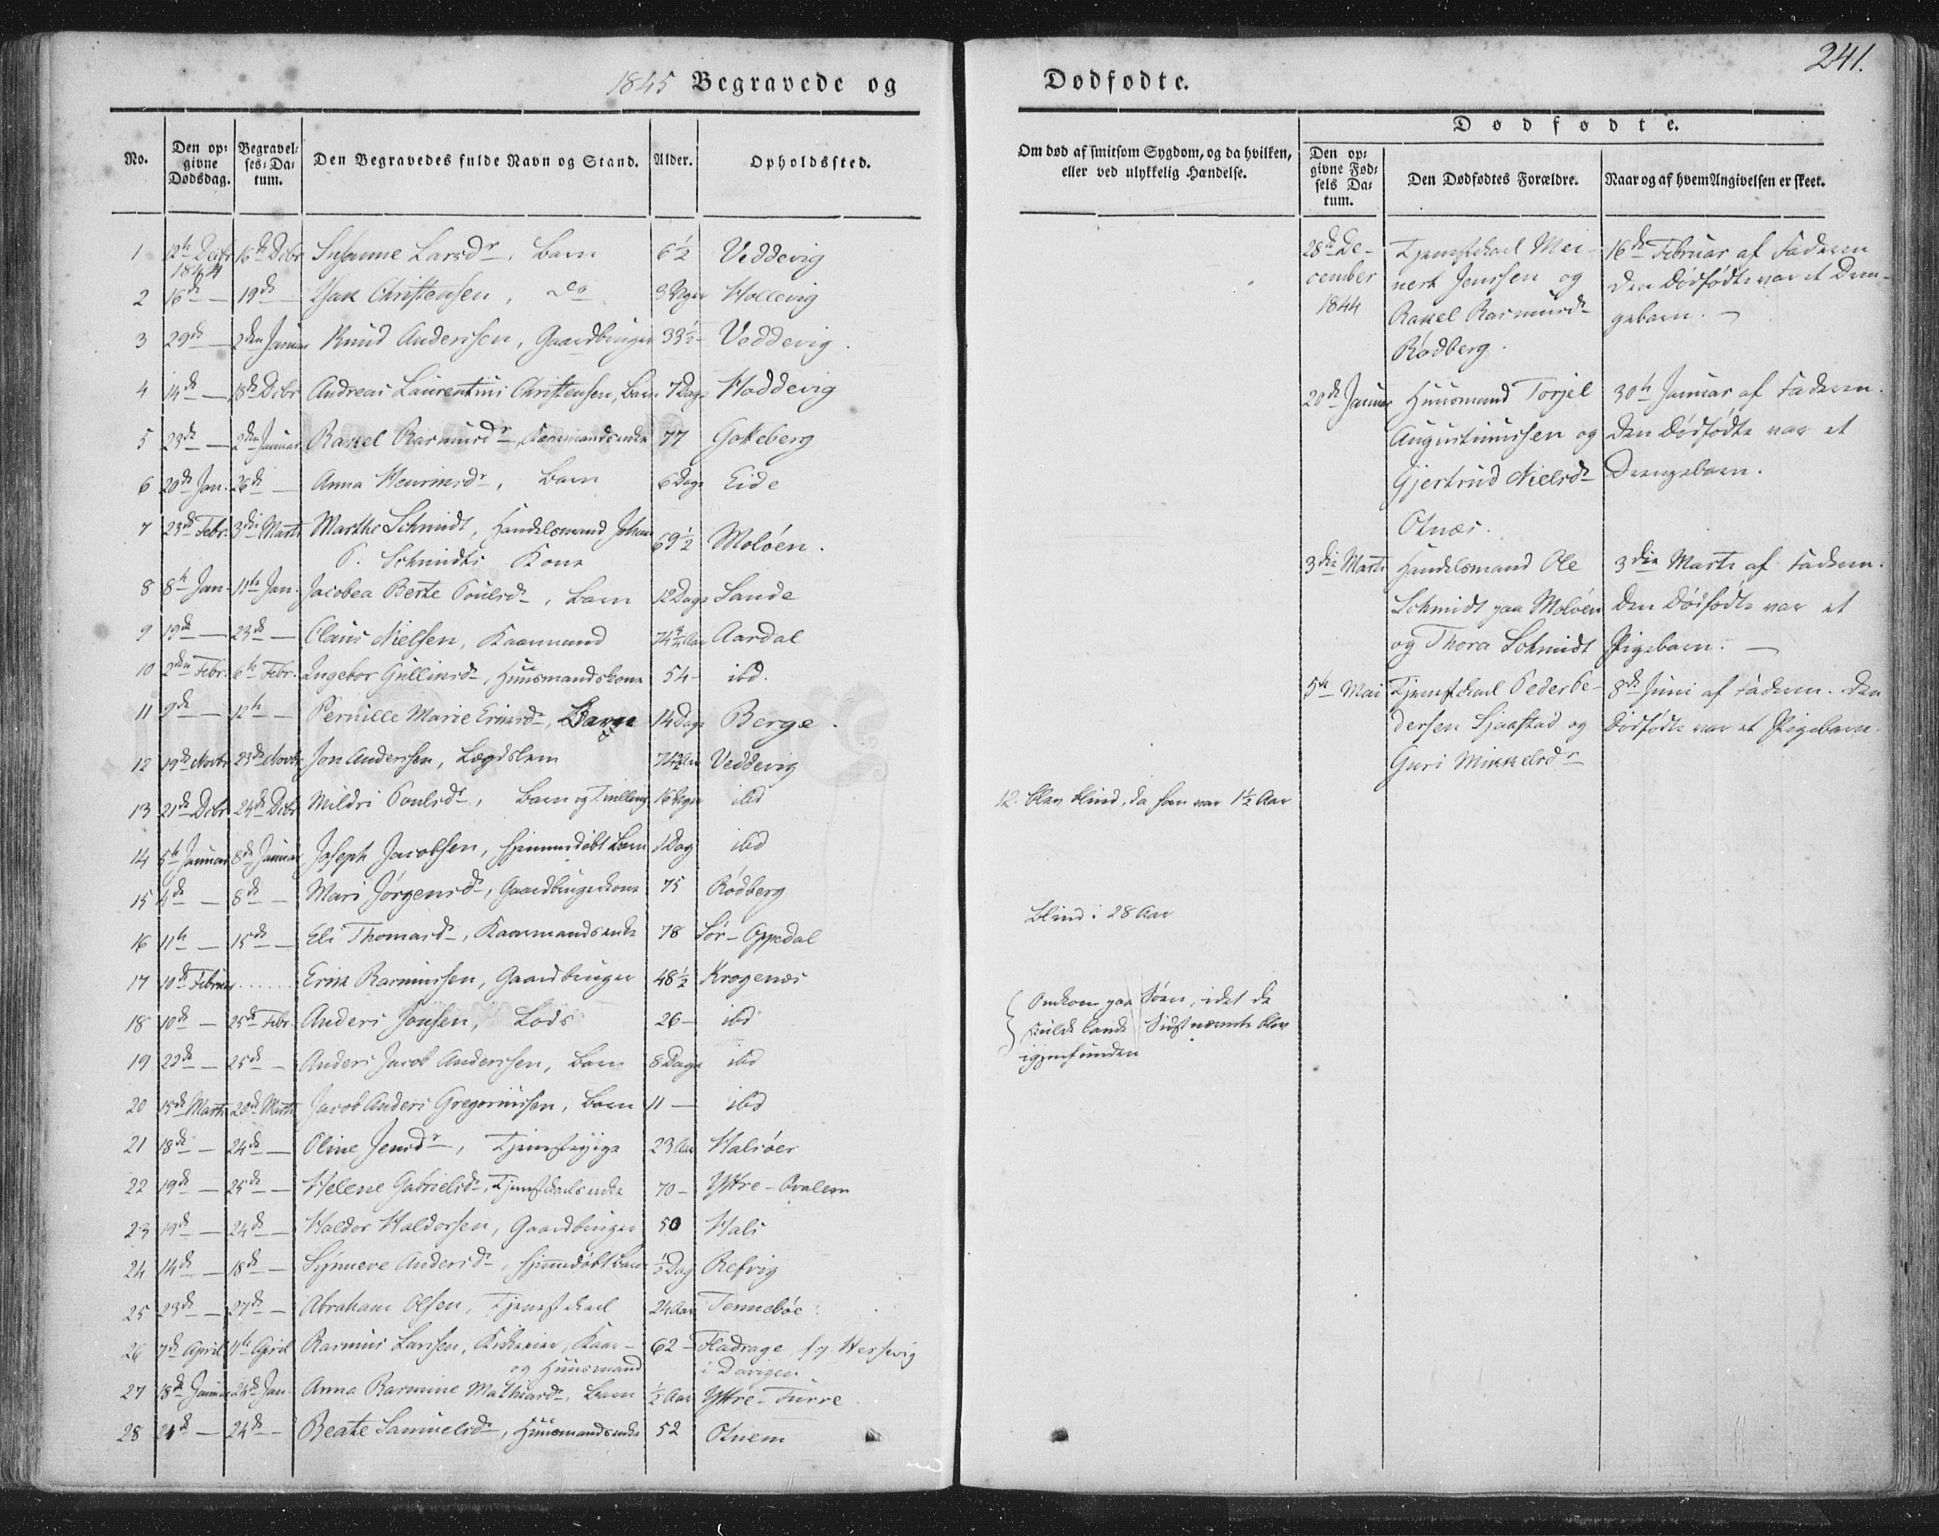 1845 Begravede og
No.
Den opgivne Dødsdag.
Begravelses-Datum.
Den Begravedes fulde Navn og Stand.
Alder.
Opholdssted.
1 12te Decbr 1844 16de Decbr Susanne Larsdr, Barn 6½ Veddevig
2 16de — 19de — Isak Christensen, do 3 Uger Hollevig
3 29de — 2den Januar Knud Anderssen, Gaardbruger 33½ Veddevig.
4 14de — 18de Decbr Andreas Laurentius Christensen, Barn 7 Dage Hoddevig
5 23de — 2den Januar Rakel Rasmusdr, Kaarmandsenke 77 Gokeberg
6 20de Jan. 26de — Anna Henriksdr, Barn 6 Dage Eide
7 23de Febr. 3die Marts Marthe Schmidt, Handelsmand Johan
P. Schmidts Kone 69½ Moløen.
8 8de Jan. 11te Jan. Jacobea Berte Poulsdr, Barn 12 Dage Sande
9 19de — 23de — Claus Nielsen, Kaarmand 74¾ Aar Aardal
10 2den Febr. 6te Febr. Ingebor Gullinsdr, Huusmandskone 54 – ibd.
11 9de — 12te — Pernille Marie Eriksdr, Barn 14 Dage Berge.
12 19de Novbr 23de Novbr Jon Anderssen, Lægdslem 74½ Aar Veddevig
13 21de Decbr 24de Decbr Mildri Poulsdr, Barn og Tvilling 16 Uger ibd
14 5te Januar 8de Januar Joseph Jacobsen, hjemmedøbt Barn 1 Dag ibd
15 4de — 8de — Mari Jørgensdr, Gaardbrugerkone 75 Rødberg
16 11te — 15de — Eli Thomasdr, Kaarmandsenke 78 Sør-Oppedal
17 10de Februar ...... Erik Rasmussen, Gaardbruger 48½ Krogenæs
18 10de — 25de Febr. Anders Jonsen, Lods 26 – ibd
19 22de — 25de — Anders Jacob Anderssen, Barn 8 Dage ibd
20 15de Marts 20de Marts Jacob Anders Gregoriussen, Barn 11 — ibd
21 18de — 24de — Oline Jensdr, Tjenestepige 23 Aar Halsøer
22 19de — 25de — Helene Gabrielsdr, Tjenstkarlsenke 70 – Yttre-Qvalem
23 19de — 24de — Haldor Haldorsen, Gaardbruger 50 Hals
24 14de — 18de — Synneve Andersdr, hjemmedøbt Barn ½ Dag Refvig
25 23de — 27de — Abraham Olsen, Tjenestkarl 24 Aar Tennebøe
26 7de April 11te April Rasmus Larssen, Kirkeeier, Kaar-
og Huusmand 62 – Fladrage
i Davigen
27 18de Januar 26de Jan. Anna Rasmine Mathiasdr, Barn ½ Aar Yttre-Furre
28 21de — 24de — Beate Samuelsdr, Huusmandsenke 52 Otnem
241.
Dødfødte.
Om død af smitsom Sygdom, og da hvilken, eller ved ulykkelig Hændelse.
12. blev blind, da han var 1½ Aar
blind i 28 Aar
Omkom paa Søen, idet de
skulde lande. Sidstnævnte blev
igjenfunden
Dødfødte.
Den opgivne Fødsels Datum.
Den Dødfødtes Forældre.
Naar og af hvem Angivelsen er skeet.
28de De- Tjenestkarl Mei- 16de Februar af Faderen
cember nert Jenssen og Den Dødfødte var et Dren-
1844 Rakel Rasmusdr gebarn. —
Rødberg.
20de Januar Huusmand Torjel 30te Januar af Faderen.
Augustinussen og Den Dødfødte var et
Gjertrud Nielsdr Drengebarn.
Otnæs.
3die Marts Handelsmand Ole 3die Marts af Faderen.
Schmidt paa Moløen Den Dødfødte var et
og Thora Schmidt Pigebarn. —
5te Mai Tjenestkarl Peder Pe- 8de Juni af Faderen. Den
dersen Sjaastad og Dødfødte var et Pigebarn.
Guri Mikkelsdr